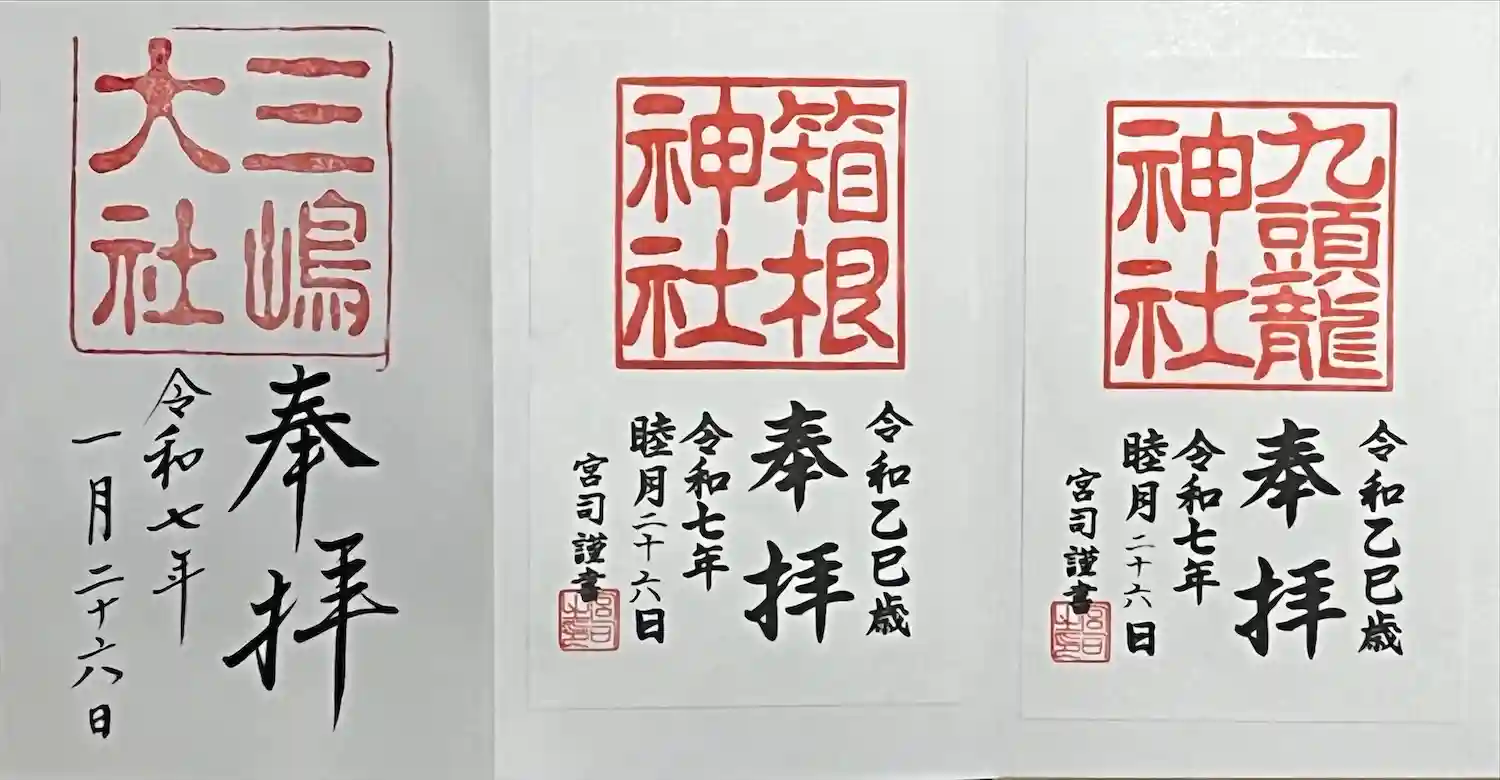 三嶋
大社
奉拝
令和七年
一月二十六日
箱根
神社
令和乙巳歳
奉拝
令和七年
睦月二十六日
宮司謹書
九頭龍
神社
令和乙巳歳
奉拝
令和七年
睦月二十六日
宮司謹書